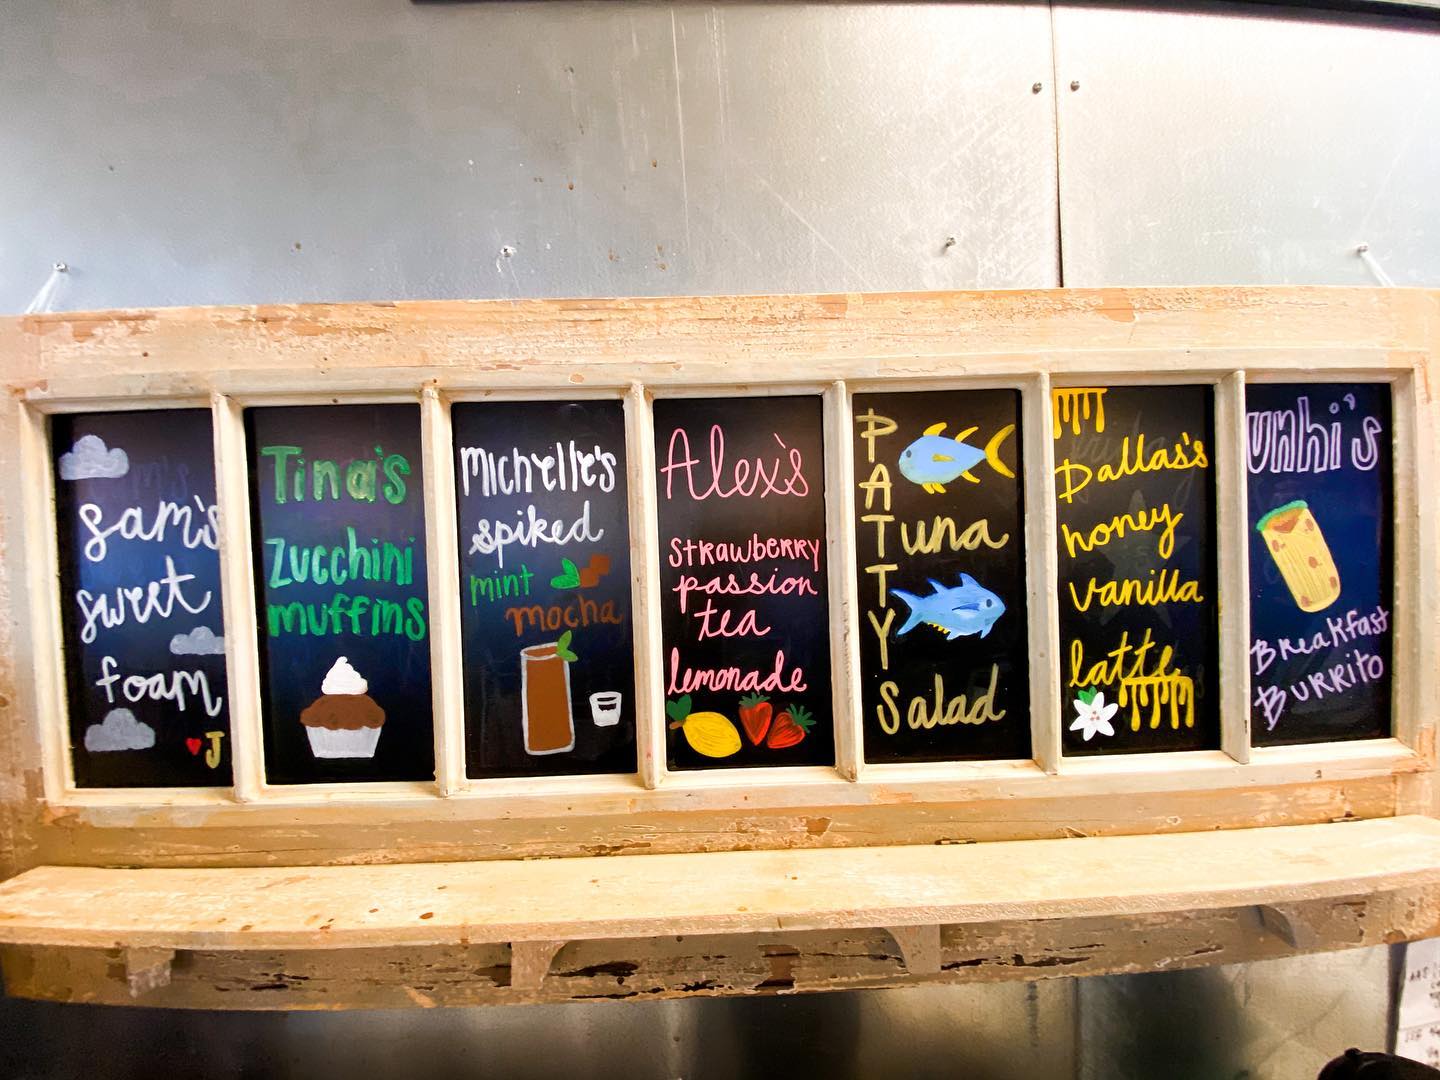 Sam's
sweet
foam
J
Tina's
Zucchini
muffins
Michelle's
spiked
mint
mocha
Alex's
Strawberry
passion
tea
lemonade
PATTY
Tuna
Salad
Dallas's
honey
vanilla
latte
unhi's
Breakfast
Burrito